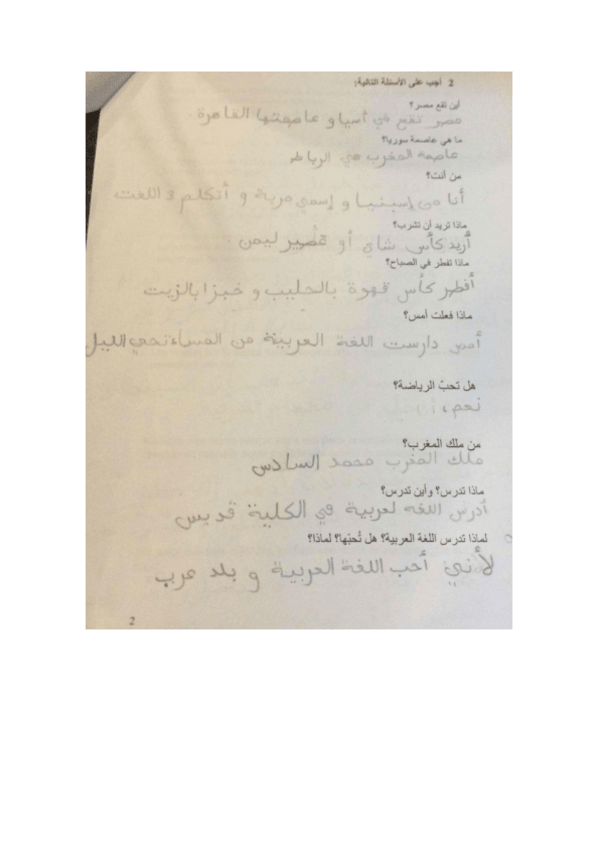 2 أجب على الأسئلة التالية:
أين تقع مصر؟
مصر تقع في آسيا و عاصمتها القاهرة.
ما هي عاصمة سوريا؟
عاصمة المغرب هي الرباط
من أنت؟
أنا من إسبنيا و إسمي مرية و أتكلم 3 اللغت
ماذا تريد أن تشرب؟
أريد كأس شاي أو عصير ليمن.
ماذا تفطر في الصباح؟
أفطر كأس قهوة بالحليب و خبزا بالزيت
ماذا فعلت أمس؟
أمس دارست اللغة العربية من المساء تحى الليل
هل تحبّ الرياضة؟
نعم،
من ملك المغرب؟
ملك المغرب محمد السادس
ماذا تدرس؟ وأين تدرس؟
أدرس اللغة لعربية في الكلية قديس
لماذا تدرس اللغة العربية؟ هل تُحبّها؟ لماذا؟
لأنني أحب اللغة العربية و بلد عرب
2